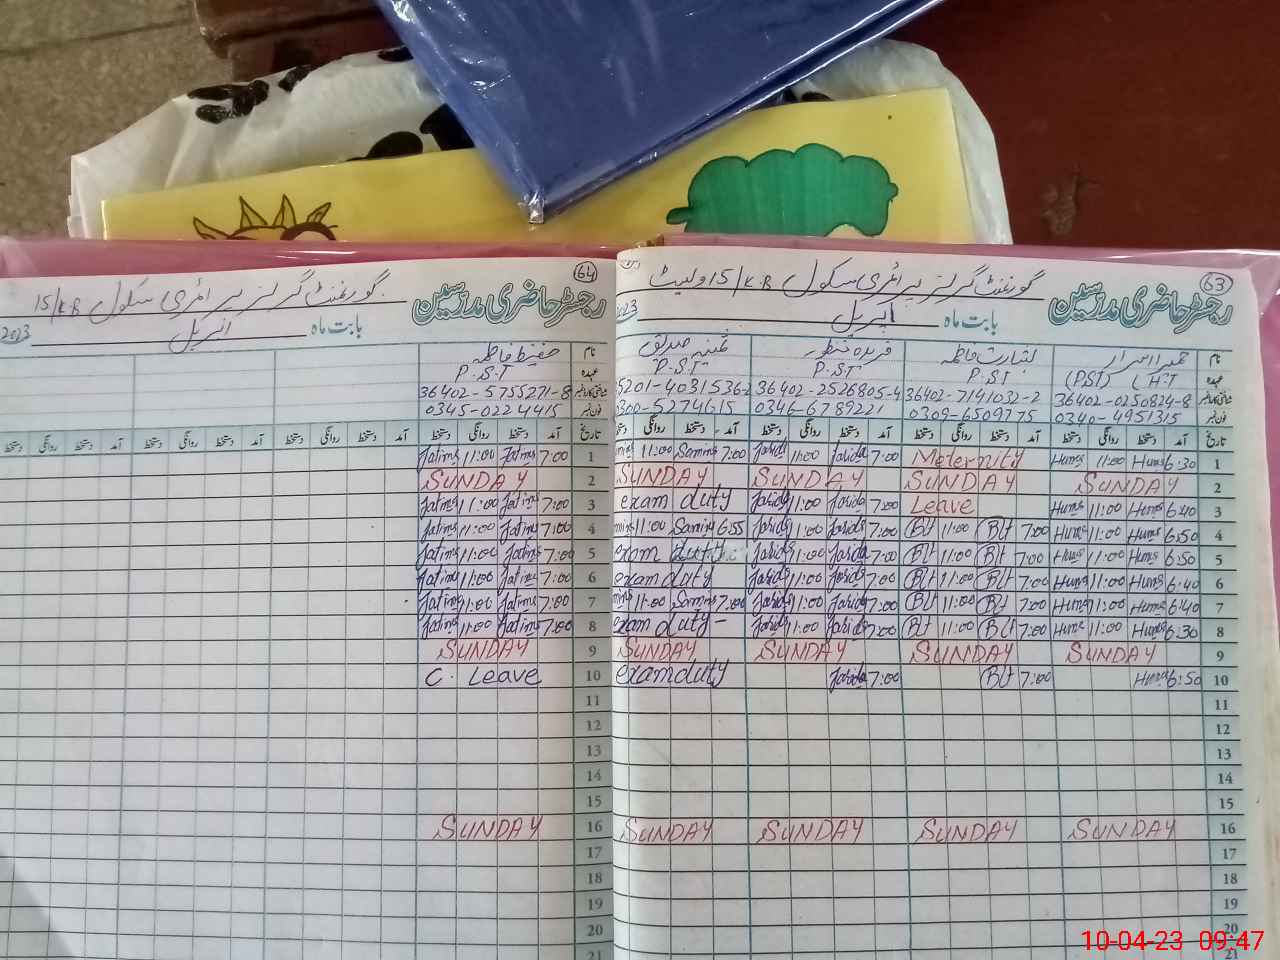 63
رجسٹر حاضری مدرسین
گورنمنٹ گرلز پرائمری سکول 15/K.B
بابت ماہ اپریل
نام
فریدہ منظور
عہدہ (PST) H.T P.S.T P.S.T P.S.T
36402-0250824-8 36402-7191032-2 36402-2526805-4 5201-4031536-2
فون نمبر 0340-4951315 0309-6509775 0346-6789221 0300-5274615
تاریخ آمد دستخط روانگی دستخط آمد دستخط روانگی دستخط آمد دستخط روانگی دستخط آمد دستخط روانگی دستخط
1 6:30 Huma 11:00 Huma Meternity 7:00 Farida 11:00 Farida 7:00 11:00
2 SUNDAY SUNDAY SUNDAY SUNDAY
3 6:40 Huma 11:00 Huma Leave 7:00 Farida 11:00 Farida exam duty
4 6:50 Huma 11:00 Huma 7:00 11:00 7:00 Farida 11:00 Farida 6:55 11:00
5 6:50 Huma 11:00 Huma 7:00 11:00 7:00 Farida 11:00 Farida exam duty
6 6:40 Huma 11:00 Huma 7:00 11:00 7:00 Farida 11:00 Farida exam duty
7 6:40 Huma 11:00 Huma 7:00 11:00 7:00 Farida 11:00 Farida 7:00 11:00
8 6:30 Huma 11:00 Huma 7:00 11:00 7:00 Farida 11:00 Farida exam duty -
9 SUNDAY SUNDAY SUNDAY SUNDAY
10 6:50 Huma 7:00 7:00 Farida exam duty
11
12
13
14
15
16 SUNDAY SUNDAY SUNDAY SUNDAY
17
18
19
20
21
64
رجسٹر حاضری مدرسین
گورنمنٹ گرلز پرائمری سکول 15/K.B
بابت ماہ اپریل 2023
نام حفیظ فاطمہ
عہدہ P.S.T
36402-5755271-8
فون نمبر 0345-0224415
تاریخ آمد دستخط روانگی دستخط آمد دستخط روانگی دستخط آمد دستخط روانگی دستخط
1 7:00 Fatima 11:00 Fatima
2 SUNDAY
3 7:00 Fatima 11:00 Fatima
4 7:00 Fatima 11:00 Fatima
5 7:00 Fatima 11:00 Fatima
6 7:00 Fatima 11:00 Fatima
7 7:00 Fatima 11:00 Fatima
8 7:00 Fatima 11:00 Fatima
9 SUNDAY
10 C. Leave
11
12
13
14
15
16 SUNDAY
17
18
19
20
21
10-04-23 09:47